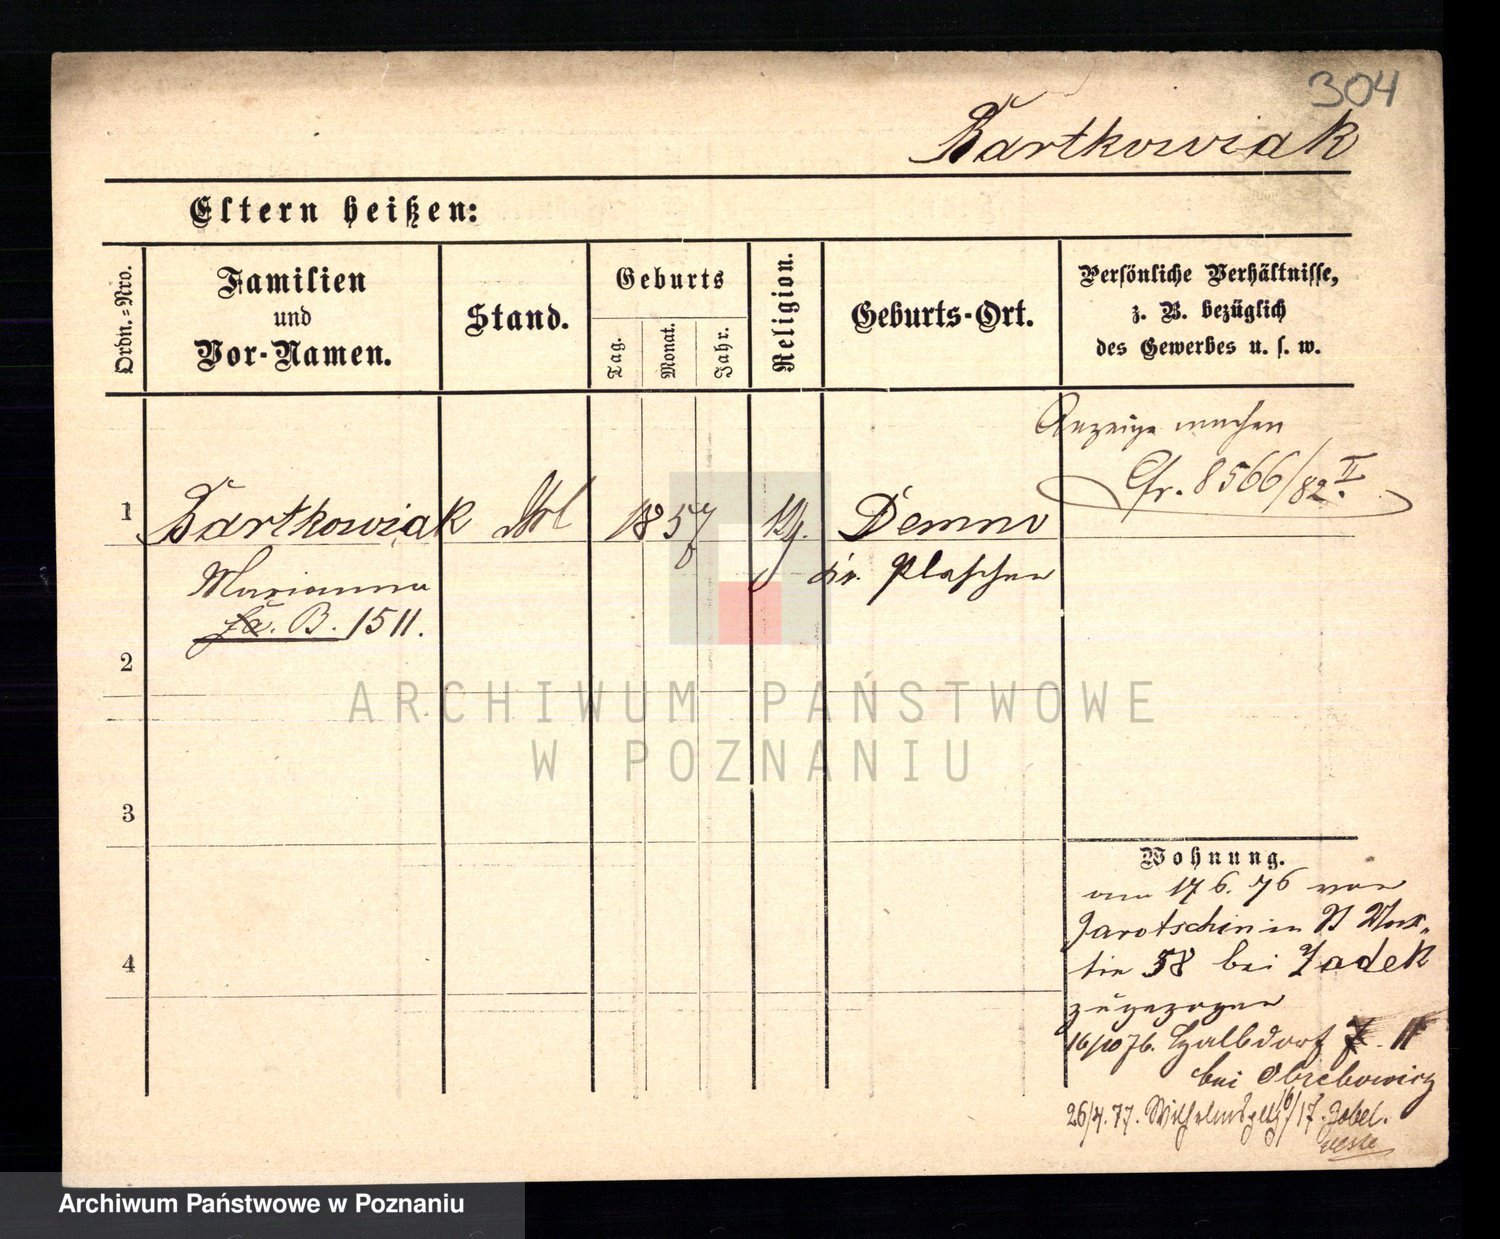 304
Bartkowiak
Eltern heißen:
Ordn.-Nro.
Familien
und
Vor-Namen.
Stand.
Geburts
Tag.
Monat.
Jahr.
Religion.
Geburts-Ort.
Persönliche Verhältnisse,
z. B. bezüglich
des Gewerbes u. s. w.
Anzeige machen
Cfr. 8566/82. II
1
Bartkowiak
1857
Demno
Marianna
Plaschen
B. 1511.
2
3
4
Wohnung.
am 17 6. 76 von
Jarotschin in
58 bei Zadek
zugezogen
16/10 76. Halbdorf 11
bei Obrebowicz
26/4. 77. Wilhelmspltz 17. Zobel.
ARCHIWUM PAŃSTWOWE
W POZNANIU
Archiwum Państwowe w Poznaniu